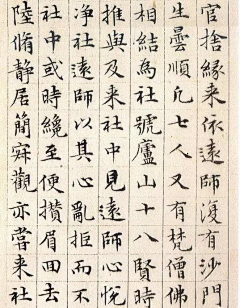 官捨緣来依遠師復有沙門
生曇順凡七人又有梵僧佛
相結為社號廬山十八賢時
推與及来社中見遠師心悅
淨社遠師以其心亂拒而不
社中或時纔至便攢眉回去
陸脩靜居簡寂觀亦嘗来社